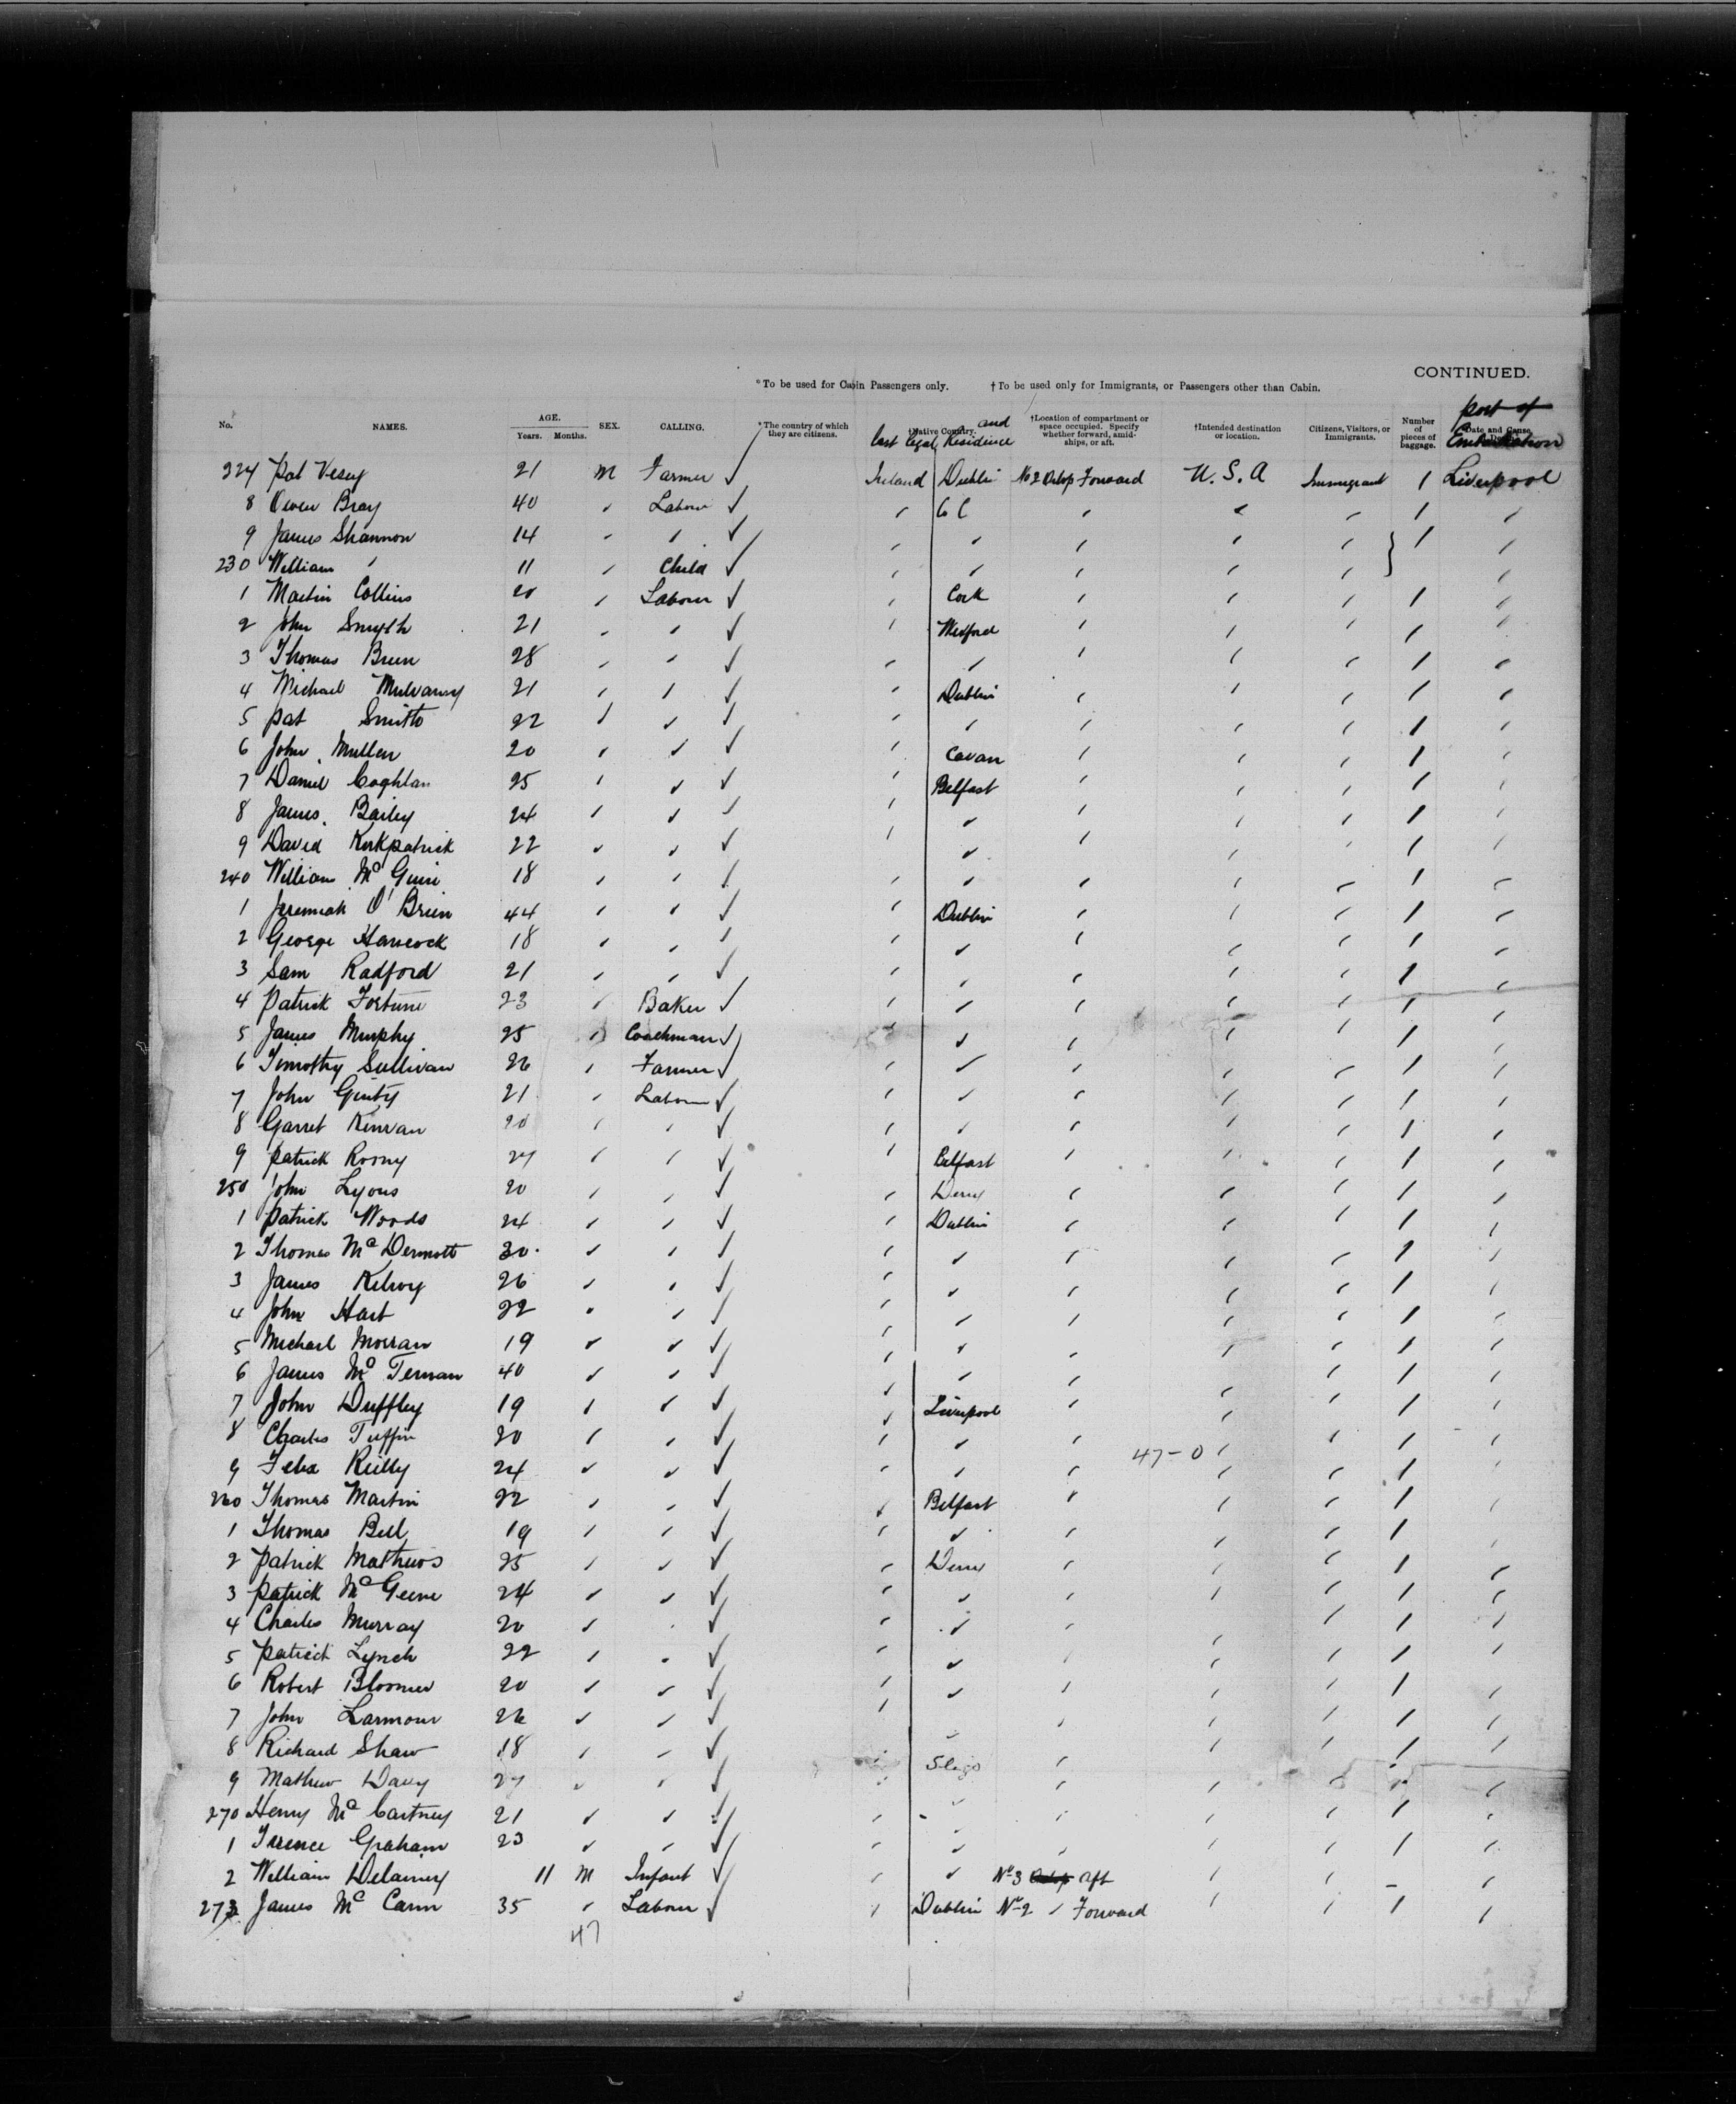 CONTINUED.
*To be used for Cabin Passengers only. †To be used only for Immigrants, or Passengers other than Cabin.
No. NAMES. AGE. Years. Months. SEX. CALLING. *The country of which they are citizens. †Native Country. and last legal Residence †Location of compartment or space occupied. Specify whether forward, amidships, or aft. †Intended destination or location. Citizens, Visitors, or Immigrants. Number of pieces of baggage. Date and Cause port of Embarkation
224 Pat Vesey 21 M Farmer ✓ Ireland Dublin No 2 Orlop Forward U.S.A Immigrant 1 Liverpool
8 Owen Bray 40 " Labour ✓ " " " " 1 "
9 James Shannon 14 " " ✓ " " " " " } 1 "
230 William " 11 " Child ✓ " " " " " "
1 Martin Collins 20 " Labour ✓ " Cork " " " 1 "
2 John Smyth 21 " " ✓ " Wexford " " " 1 "
3 Thomas Breen 28 " " ✓ " " " " " 1 "
4 Michael Mulvany 21 " " ✓ " Dublin " " " 1 "
5 Pat Smith 22 " " ✓ " " " " " 1 "
6 John Mullen 20 " " ✓ " Cavan " " " 1 "
7 Daniel Coghlan 25 " " ✓ " Belfast " " " 1 "
8 James Bailey 24 " " ✓ " " " " " 1 "
9 David Kirkpatrick 22 " " ✓ " " " " " 1 "
240 William Mc Guire 18 " " ✓ " " " " " 1 "
1 Jeremiah O'Brien 44 " " ✓ " Dublin " " " 1 "
2 George Hancock 18 " " ✓ " " " " " 1 "
3 Sam Radford 21 " " ✓ " " " " " 1 "
4 Patrick Fortune 23 " Baker ✓ " " " " " 1 "
5 James Murphy 25 " Coachman ✓ " " " " " 1 "
6 Timothy Sullivan 26 " Farmer ✓ " " " " " 1 "
7 John Ginty 21 " Labour ✓ " " " " " 1 "
8 Garret Kirwan 20 " " ✓ " " " " " 1 "
9 Patrick Roony " " ✓ " Belfast " " " 1 "
250 John Lyons 20 " " ✓ " Derry " " " 1 "
1 Patrick Woods 24 " " ✓ " Dublin " " " 1 "
2 Thomas Mc Dermott 30 " " ✓ " " " " " 1 "
3 James Kilroy 26 " " ✓ " " " " " 1 "
4 John Hart 22 " " ✓ " " " " " 1 "
5 Michael Morran 19 " " ✓ " " " " " 1 "
6 James Mc Ternan 40 " " ✓ " " " " " 1 "
7 John Duffley 19 " " ✓ " Liverpool " " " 1 "
8 Charles Tuffin 20 " " ✓ " " " " " 1 "
47-0
9 Felix Reilly 24 " " ✓ " " " " " 1 "
260 Thomas Martin 22 " " ✓ " Belfast " " " 1 "
1 Thomas Bell 19 " " ✓ " " " " " 1 "
2 Patrick Mathews 25 " " ✓ " Derry " " " 1 "
3 Patrick Mc Geeve 24 " " ✓ " " " " " 1 "
4 Charles Murray 20 " " ✓ " " " " " 1 "
5 Patrick Lynch 22 " " ✓ " " " " " 1 "
6 Robert Bloomer 20 " " ✓ " " " " " 1 "
7 John Larmour 26 " " ✓ " " " " " 1 "
8 Richard Shaw 18 " " ✓ " Sligo " " " 1 "
9 Mathew Davy 27 " " ✓ " " " " " "
270 Henry Mc Cartney 21 " " ✓ " " " " " 1 "
1 Terence Graham 23 " " ✓ " " " " " 1 "
2 William Delamey 11 M Infant ✓ " " No 3 Orlop Aft " " - "
273 James Mc Cann 35 " Labour ✓ " Dublin No 2 " Forward " " 1 "
47